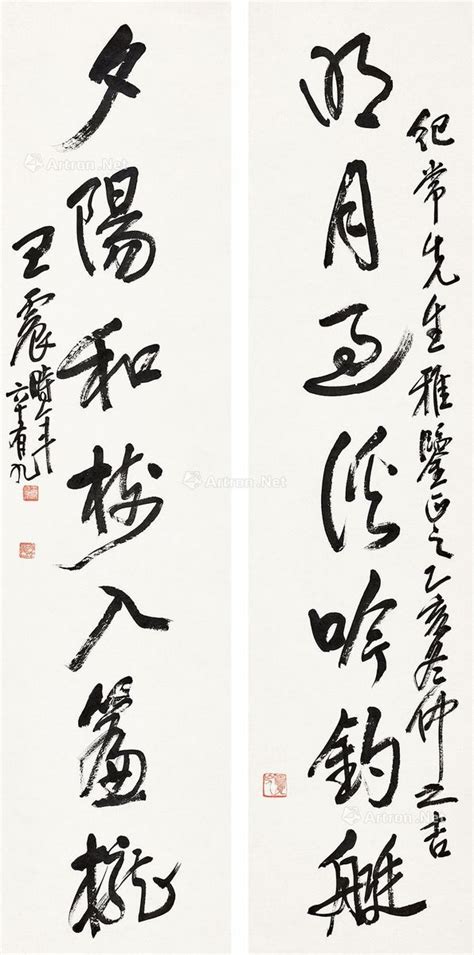 紀常先生雅鑒正之乙亥冬仲之吉
明月過溪吟釣艇
夕陽和樹入簾櫳
王震時年六十有九
Artron.Net
Artron.Net
Artron.Net
Artron.Net